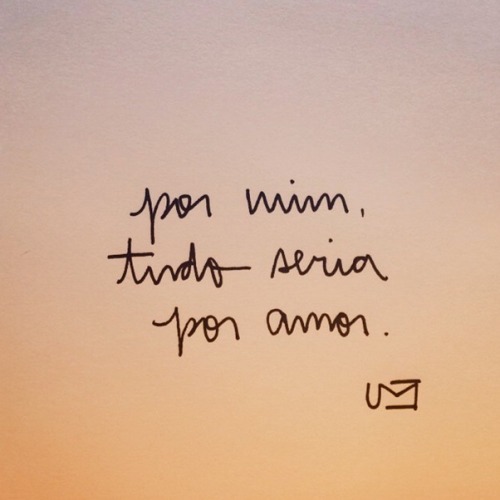 por mim,
tudo seria
por amor.